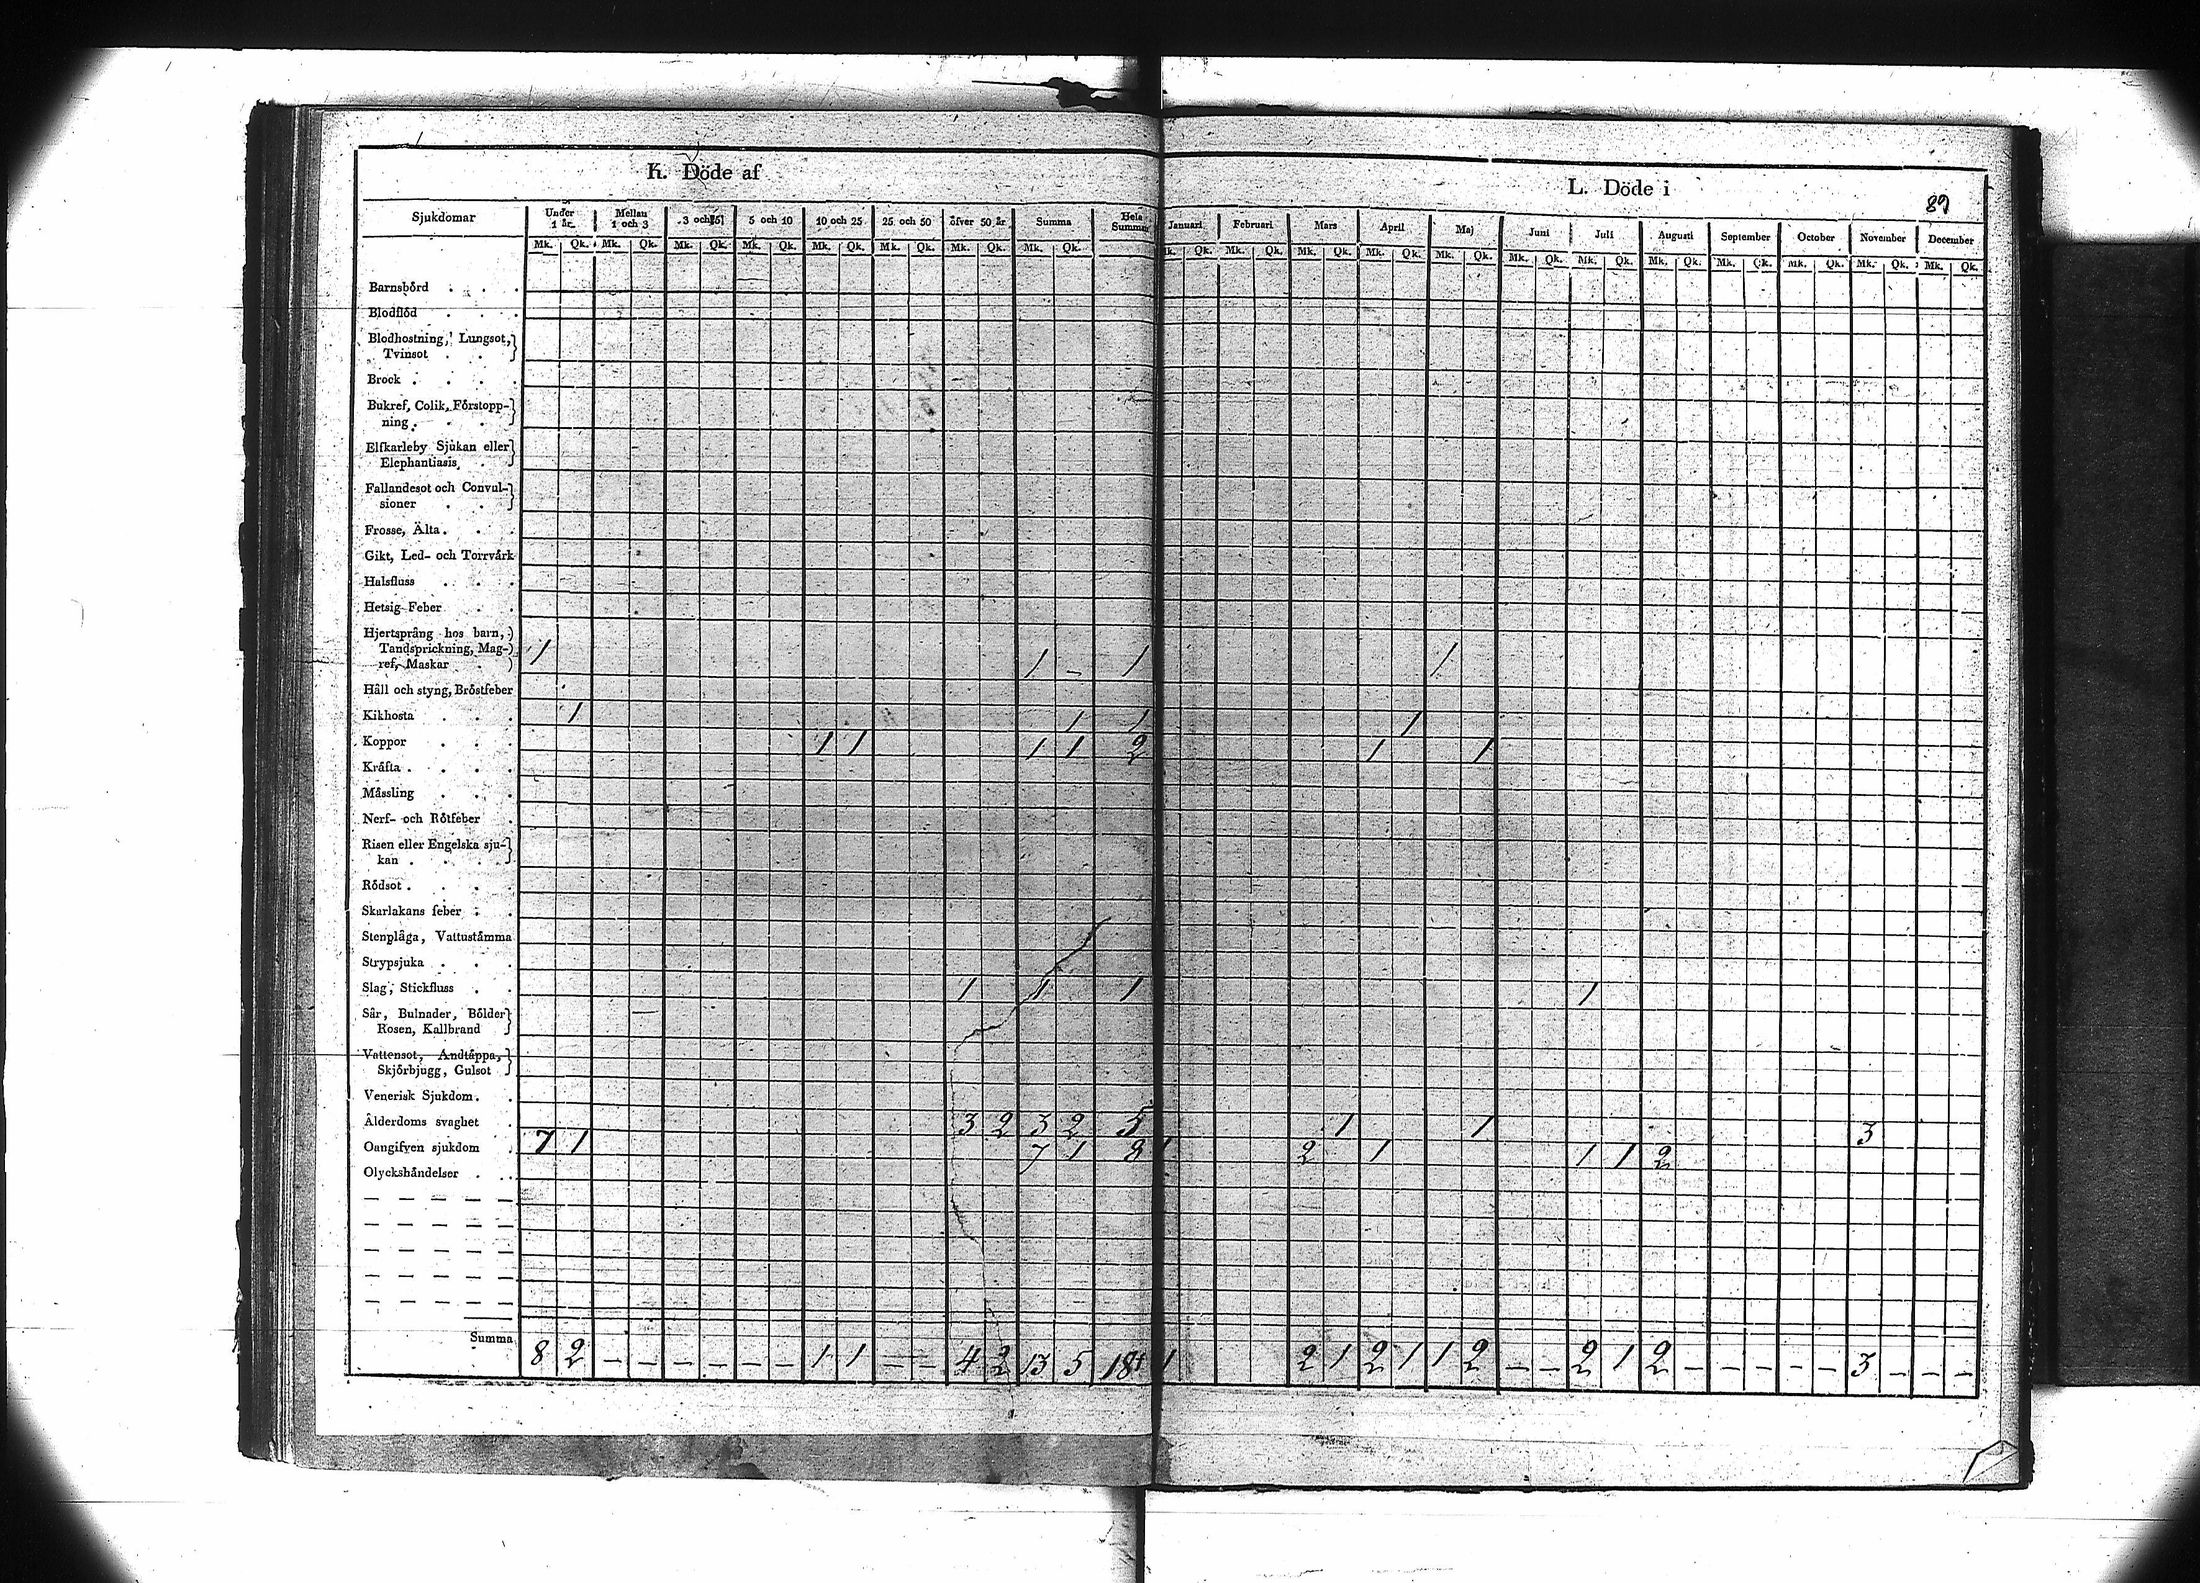 K. Döde af
L. Döde i
89
Sjukdomar Under 1 år. Mellan 1 och 3 3 och 5 5 och 10 10 och 25 25 och 50 öfver 50 år Summa Hela Summan Januari Februari Mars April Maj Juni Juli Augusti September October November December
Mk. Qk. Mk. Qk. Mk. Qk. Mk. Qk. Mk. Qk. Mk. Qk. Mk. Qk. Mk. Qk. Mk. Qk. Mk. Qk. Mk. Qk. Mk. Qk. Mk. Qk. Mk. Qk. Mk. Qk. Mk. Qk. Mk. Qk. Mk. Qk. Mk. Qk. Mk. Qk.
Barnsbörd . . .
Blodflöd . . .
Blodhostning, Lungsot,
Tvinsot . .
Brock . . . .
Bukref, Colik, Förstopp-
ning . . .
Elfkarleby Sjukan eller
Elephantiasis .
Fallandesot och Convul-
sioner . . .
Frosse, Älta . . .
Gikt, Led- och Torrvärk
Halsfluss . . .
Hetsig Feber . .
Hjertsprång hos barn,
Tandsprickning, Mag-
ref, Maskar . 1 1 – 1 1
Håll och styng, Bröstfeber
Kikhosta . . . 1 1 1 1
Koppor . . . 1 1 1 1 2 1 1
Kräfta . . . .
Mässling . . .
Nerf- och Rötfeber .
Risen eller Engelska sju-
kan . . . .
Rödsot . . . .
Skarlakans feber . .
Stenplåga, Vattustämma
Strypsjuka . . .
Slag, Stickfluss . . 1 1 1 1
Sår, Bulnader, Bölder
Rosen, Kallbrand
Vattensot, Andtäppa,
Skjörbjugg, Gulsot
Venerisk Sjukdom . .
Ålderdoms svaghet . 3 2 3 2 5 1 1 3
Oangifven sjukdom . 7 1 7 1 8 1 2 1 1 1 2
Olyckshändelser . .
Summa 8 2 – – – – – – 1 1 – – 4 2 13 5 18 1 2 1 2 1 1 2 – – 2 1 2 – – – – – 3 – – –